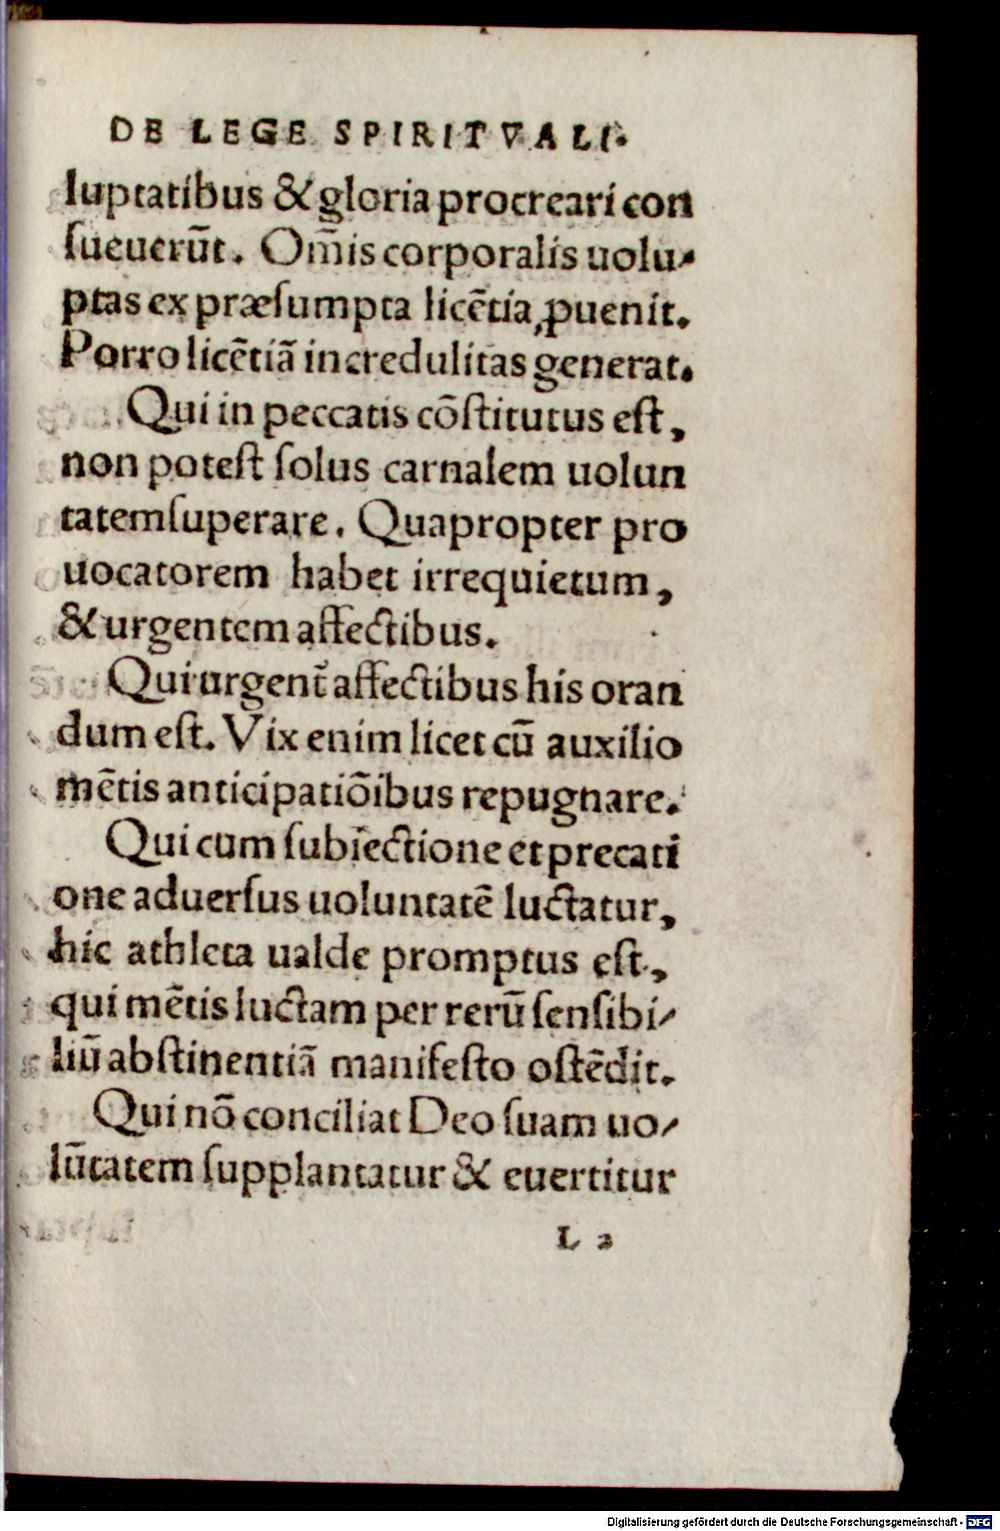 DE LEGE SPIRITVALI.
luptatibus & gloria procreari con
ſueuerūt. Om̄is corporalis uolu-
ptas ex præſumpta licētia ꝓuenit.
Porro licētiā incredulitas generat.
Qui in peccatis cōſtitutus eſt,
non poteſt ſolus carnalem uolun
tatemſuperare. Quapropter pro
uocatorem habet irrequietum,
& urgentem affectibus.
Qui urgent̄ affectibus his oran
dum eſt. Vix enim licet cū auxilio
mētis anticipatiōibus repugnare.
Qui cum ſubiectione et precati
one aduerſus uoluntatē luctatur,
hic athleta ualde promptus eſt,
qui mētis luctam per rerū ſenſibi-
liū abſtinentiā manifeſto oſtēdit.
Qui nō conciliat Deo ſuam uo-
lūtatem ſupplantatur & euertitur
L 2
Digitalisierung gefördert durch die Deutsche Forschungsgemeinschaft - DFG